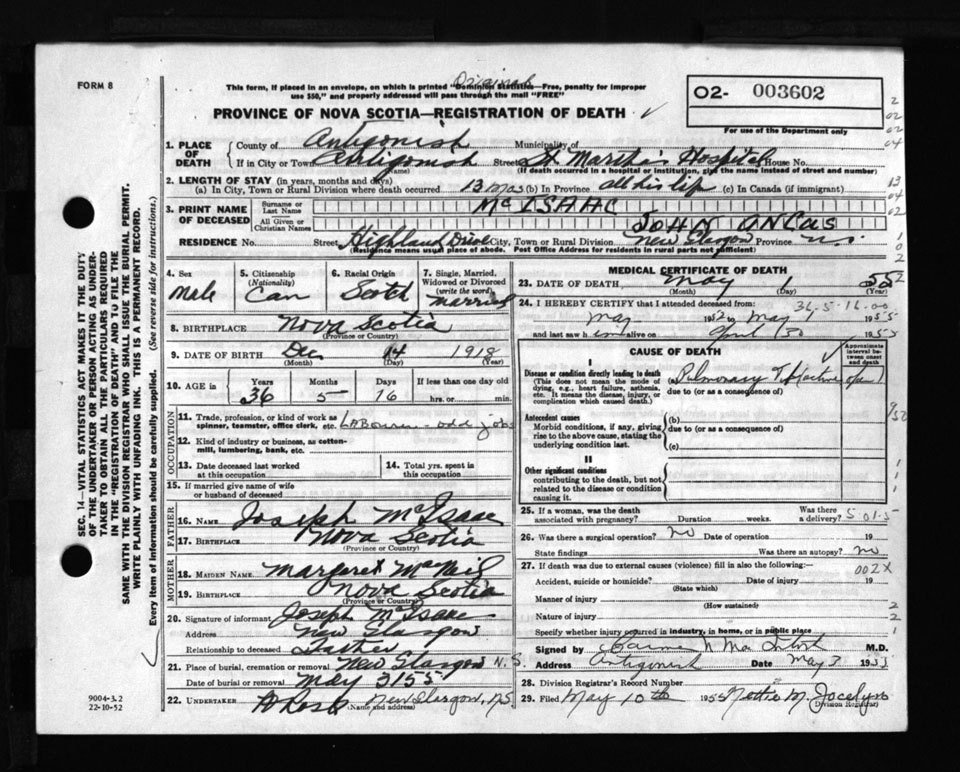 FORM 8
Original
This form, if placed in an envelope, on which is printed "Dominion Statistics—Free, penalty for improper
use $50," and properly addressed will pass through the mail "FREE"
PROVINCE OF NOVA SCOTIA—REGISTRATION OF DEATH
O2- 003602
For use of the Department only
1. PLACE OF DEATH
County of Antigonish Municipality of
If in City or Town Antigonish Street St. Martha's Hospital House No.
(Name) (If death occurred in a hospital or institution, give the name instead of street and number)
2. LENGTH OF STAY (in years, months and days)
(a) In City, Town or Rural Division where death occurred 13 mos (b) In Province all his life (c) In Canada (if immigrant)
3. PRINT NAME OF DECEASED
Surname or Last Name McISAAC
All Given or Christian Names JOHN ANGUS
RESIDENCE No. Street Highland Drive City, Town or Rural Division New Glasgow Province N.S.
(Residence means usual place of abode. Post Office Address for residents in rural parts not sufficient)
4. Sex Male
5. Citizenship (Nationality) Can
6. Racial Origin Scotch
7. Single, Married, Widowed or Divorced (write the word) married
8. BIRTHPLACE Nova Scotia
(Province or Country)
9. DATE OF BIRTH Dec 14 1918
(Month) (Day) (Year)
10. AGE in Years 36 Months 5 Days 16 If less than one day old hrs. or min.
OCCUPATION
11. Trade, profession, or kind of work as spinner, teamster, office clerk, etc. Labourer - odd jobs
12. Kind of industry or business, as cotton-mill, lumbering, bank, etc.
13. Date deceased last worked at this occupation
14. Total yrs. spent in this occupation
15. If married give name of wife or husband of deceased
FATHER
16. NAME Joseph McIsaac
17. BIRTHPLACE Nova Scotia
(Province or Country)
MOTHER
18. MAIDEN NAME Margaret McNeil
19. BIRTHPLACE Nova Scotia
(Province or Country)
20. Signature of informant Joseph McIsaac
Address New Glasgow
Relationship to deceased Father
21. Place of burial, cremation or removal New Glasgow N.S.
Date of burial or removal May 3 1955
22. UNDERTAKER New Glasgow, N.S.
(Name and address)
MEDICAL CERTIFICATE OF DEATH
23. DATE OF DEATH May 1 1955
(Month) (Day) (Year)
24. I HEREBY CERTIFY that I attended deceased from:
May 1952 to May 1 1955
and last saw him alive on April 30 1955
CAUSE OF DEATH
Approximate interval between onset and death
I
Disease or condition directly leading to death (a) Pulmonary TB (active
(This does not mean the mode of dying, e.g., heart failure, asthenia, etc. It means the disease, injury, or complication which caused death.)
due to (or as a consequence of)
Antecedent causes (b)
Morbid conditions, if any, giving rise to the above cause, stating the underlying condition last.
due to (or as a consequence of)
(c)
II
Other significant conditions
contributing to the death, but not related to the disease or condition causing it.
25. If a woman, was the death associated with pregnancy? Duration weeks. Was there a delivery?
501.5
26. Was there a surgical operation? no Date of operation 19
State findings Was there an autopsy? no
27. If death was due to external causes (violence) fill in also the following:—
002X
Accident, suicide or homicide? Date of injury 19
(State which)
Manner of injury
(How sustained)
Nature of injury
Specify whether injury occurred in industry, in home, or in public place
Signed by M.D.
Address Antigonish Date May 3 1955
28. Division Registrar's Record Number
29. Filed May 10th 1955 Nettie M. Jocelyn
(Division Registrar)
SEC. 14—VITAL STATISTICS ACT MAKES IT THE DUTY
OF THE UNDERTAKER OR PERSON ACTING AS UNDER-
TAKER TO OBTAIN ALL THE PARTICULARS REQUIRED
IN THE "REGISTRATION OF DEATH" AND TO FILE THE
SAME WITH THE DIVISION REGISTRAR WHO SHALL ISSUE THE BURIAL PERMIT.
WRITE PLAINLY WITH UNFADING INK. THIS IS A PERMANENT RECORD.
Every item of information should be carefully supplied. (See reverse side for instructions.)
9004-3.2
22-10-52